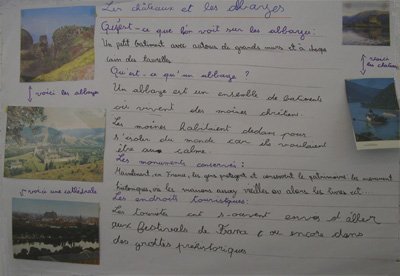 Les châteaux et les abbayes
Qu'est-ce que l'on voit sur les abbayes:
Un petit batiment avec autour de grands murs et a chaque
coin des tourelles
Qu'est-ce qu'un abbaye ?
Un abbaye est un ensemble de batiments
où vivent des moines chrétiens.
Les moines habitaient dedans pour
s'isoler du monde car ils voulaient
être au calme.
Les monuments conservés:
Maintenant, en France, les gens protegent et conservent le patrimoine les monument
historiques, les maisons assez vieilles ou alors les livres ect...
Les endroits touristiques:
Les touristes ont souvent envos d'aller
aux festivals de France ou encore dans
des grottes prehistoriques
voici les abbaye
voici une cathédrale
voici
les château